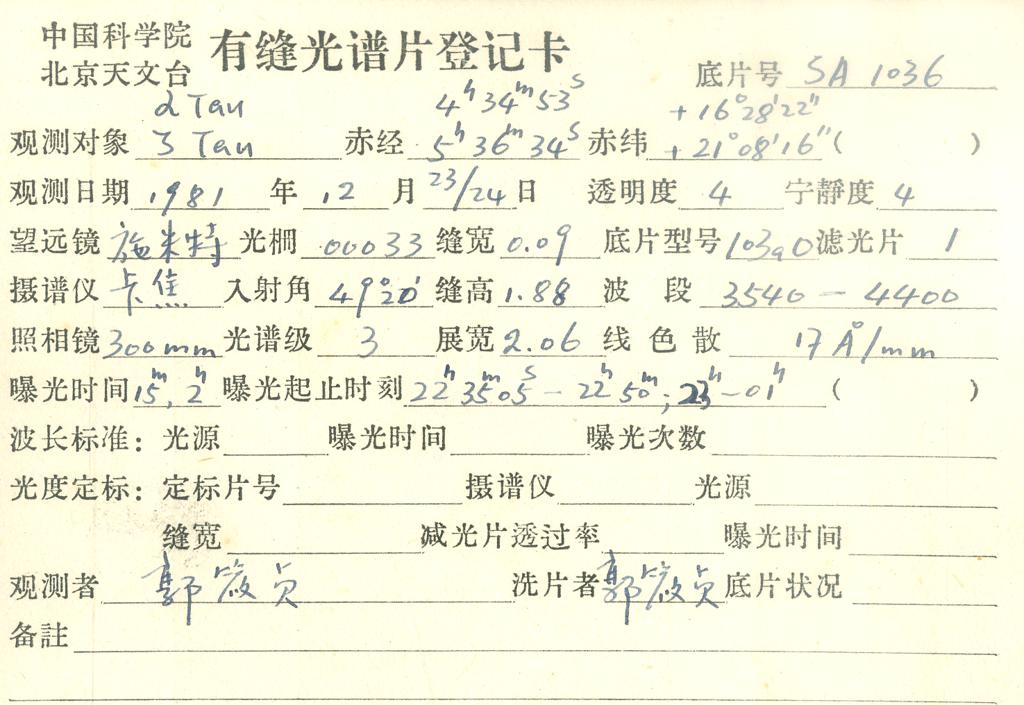 中国科学院 有缝光谱片登记卡
北京天文台 底片号 SA 1036
α Tau 4ʰ34ᵐ53ˢ +16°28′22″
观测对象 ζ Tau 赤经 5ʰ36ᵐ34ˢ 赤纬 +21°08′16″ ( )
观测日期 1981 年 12 月 23/24 日 透明度 4 宁静度 4
望远镜 施米特 光栅 00033 缝宽 0.09 底片型号 103aO 滤光片 1
摄谱仪 卡焦 入射角 49°20′ 缝高 1.88 波段 3540 — 4400
照相镜 300mm 光谱级 3 展宽 2.06 线色散 17 Å/mm
曝光时间 15ᵐ, 2ʰ 曝光起止时刻 22ʰ35ᵐ05ˢ — 22ʰ50ᵐ; 23ʰ — 01ʰ ( )
波长标准: 光源 曝光时间 曝光次数
光度定标: 定标片号 摄谱仪 光源
缝宽 减光片透过率 曝光时间
观测者 郭筱贞 洗片者 郭筱贞 底片状况
备註